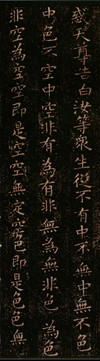 惑天尊告曰汝等衆生從不有中不無中無不色
中色不空中空非有為有非無為無非色為色
非空為空空即是空空無定空色即是色色無